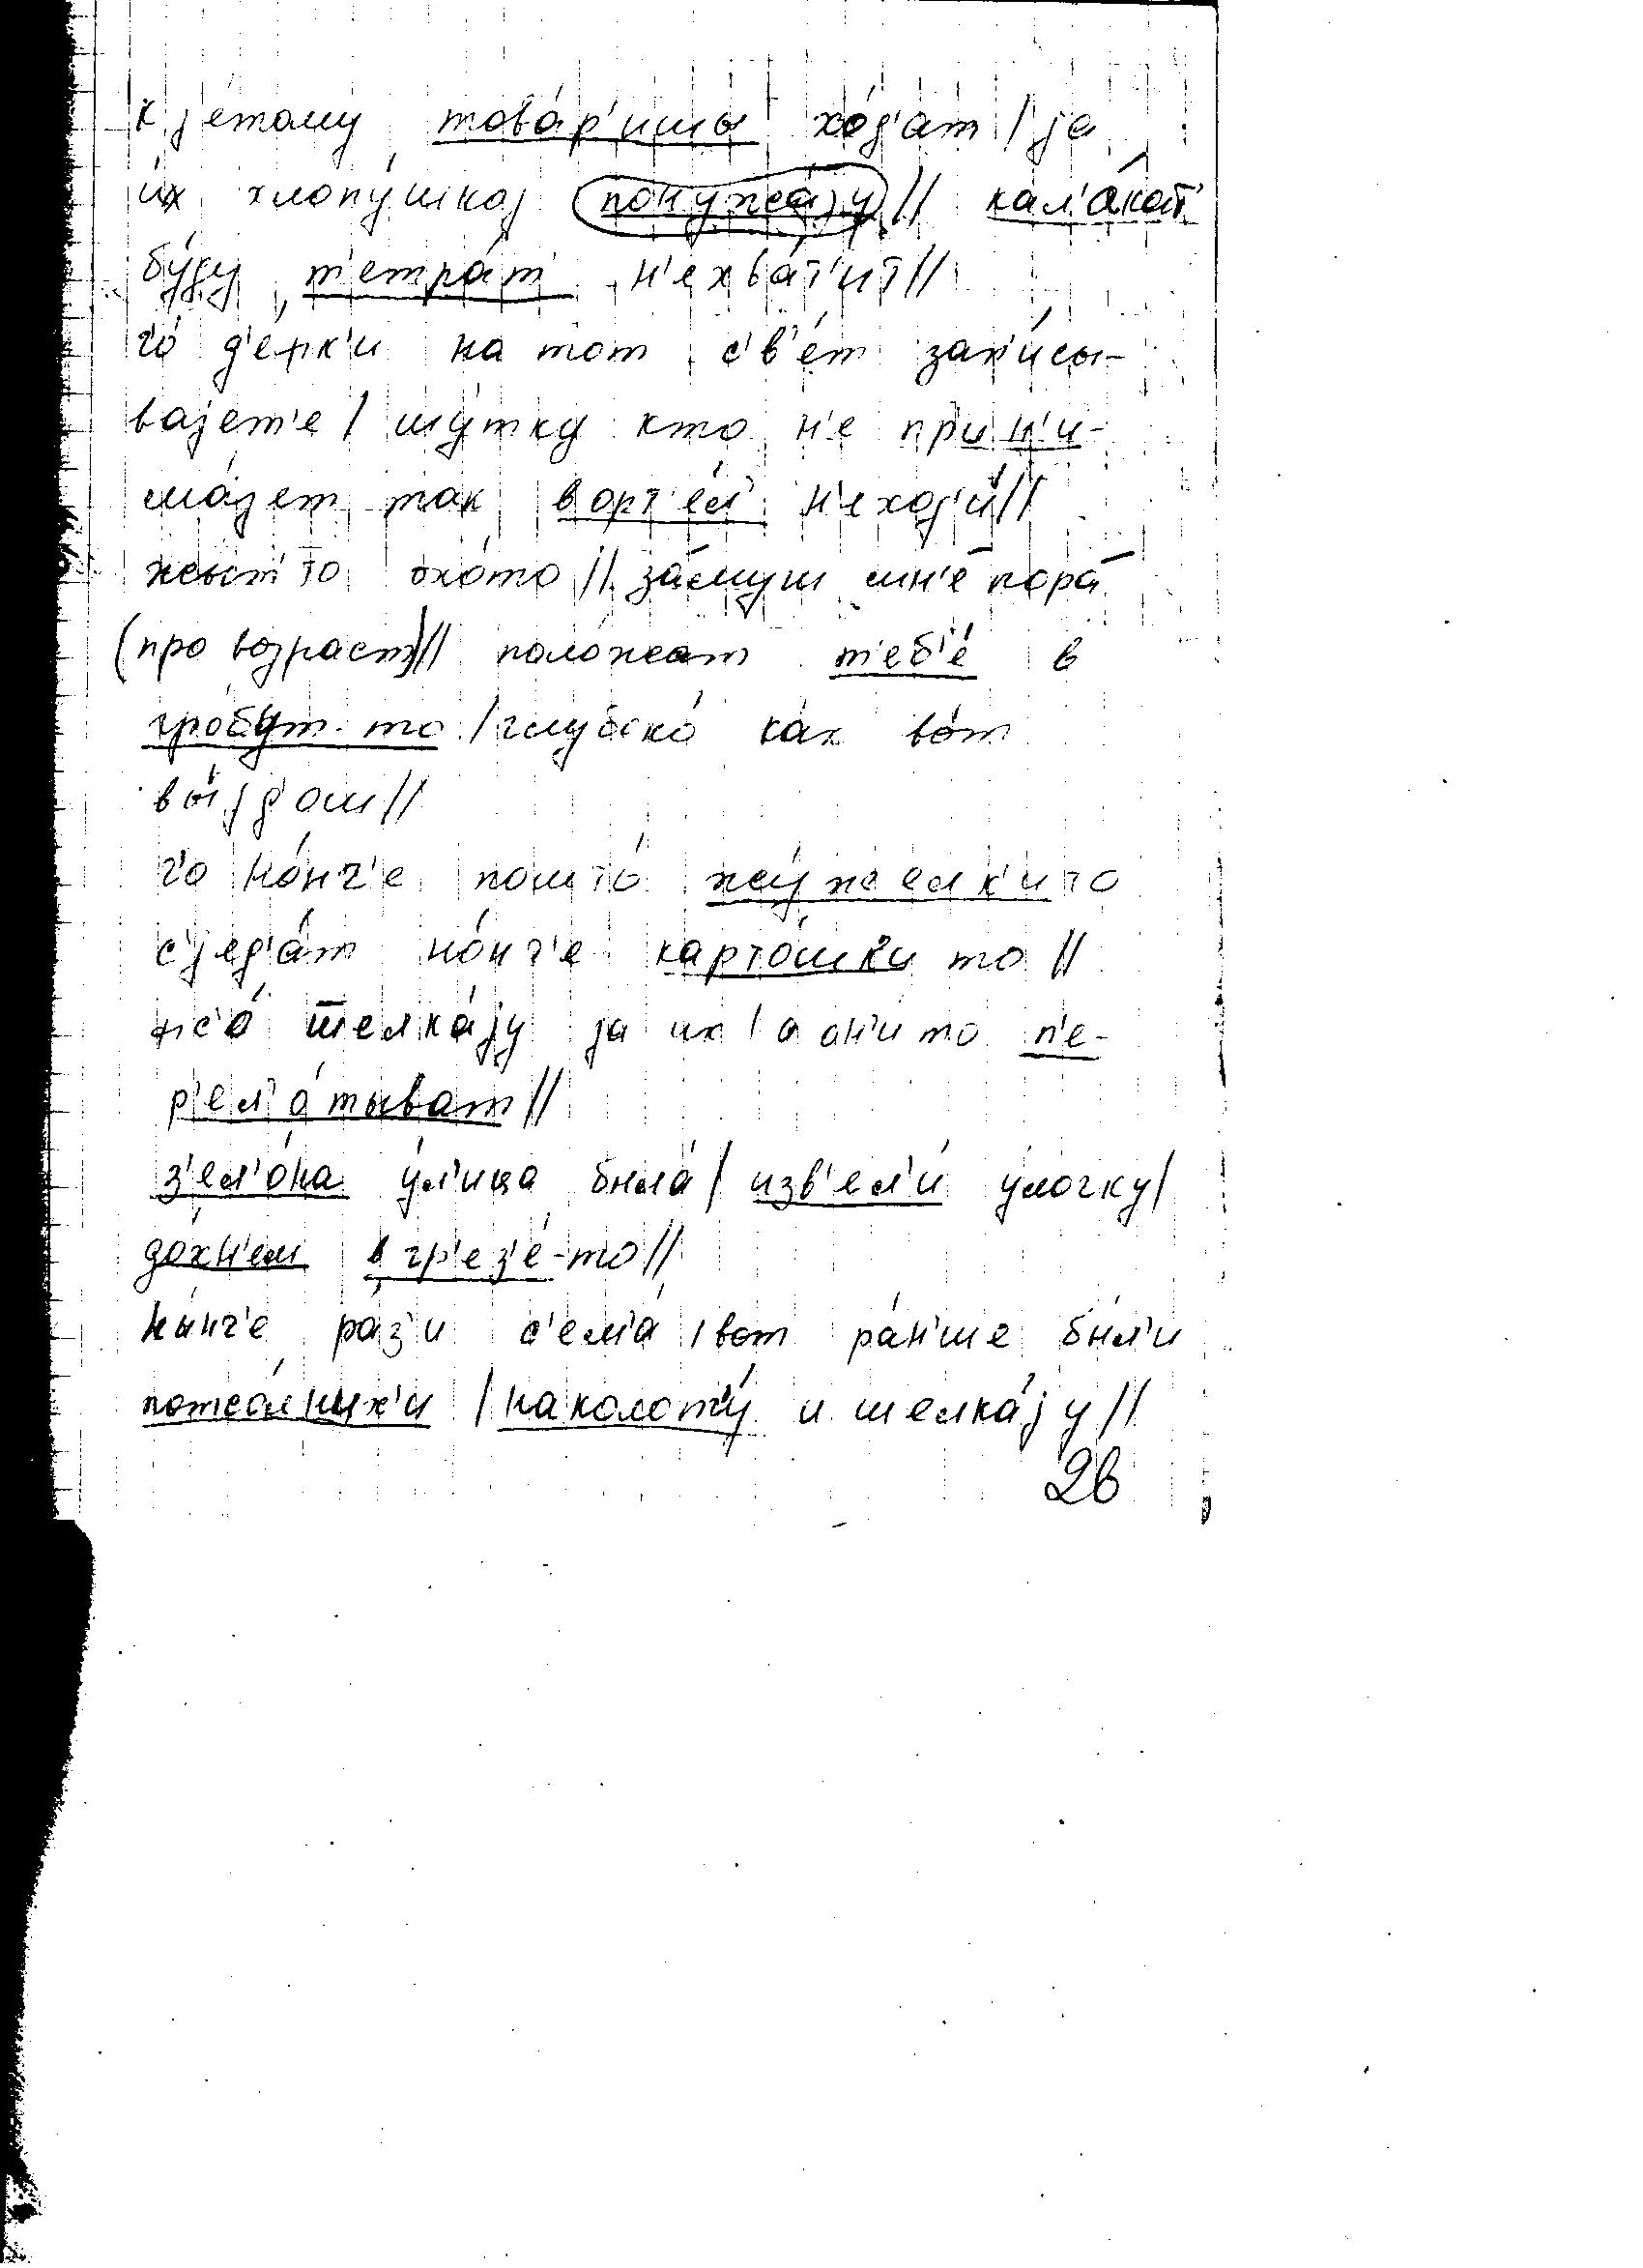 к jе́тому това́р'ишы хо́д'ат / ја
и́х хлопу́шкој понужа́јy // кал'а́кат'
бу́ду т'етра́т' н'ехва́т'ит //
ч'о́ д'е́фк'и на тот с'в'е́т зап'и́сы-
вајет'е / шу́тку кто н'е прин'и-
ма́јет так ворт'е́л' н'еход'и́ //
жыт' то охо́то // за́муш мн'е пора́
(про возраст) // поло́жат т'еб'е́ в
гро́бут-то / глубоко́ как во́т
вы́јд'ош //
ч'о но́нч'е пошто́ жу́желк'и то
с'јед'а́т но́нч'е карто́шки то //
фс'о́ шелка́јy ја их / а он'и́ то п'е-
р'ел'о́тыват //
з'ел'о́на у́л'ица была́ / изв'ел'и́ у́лочку /
до́хн'ем в гр'ез'е́-то //
ны́нч'е ра́з'и с'ем'а́ / вот ра́н'ше бы́л'и
потса́лнух'и / наколоч'у́ и шелка́јy //
2в